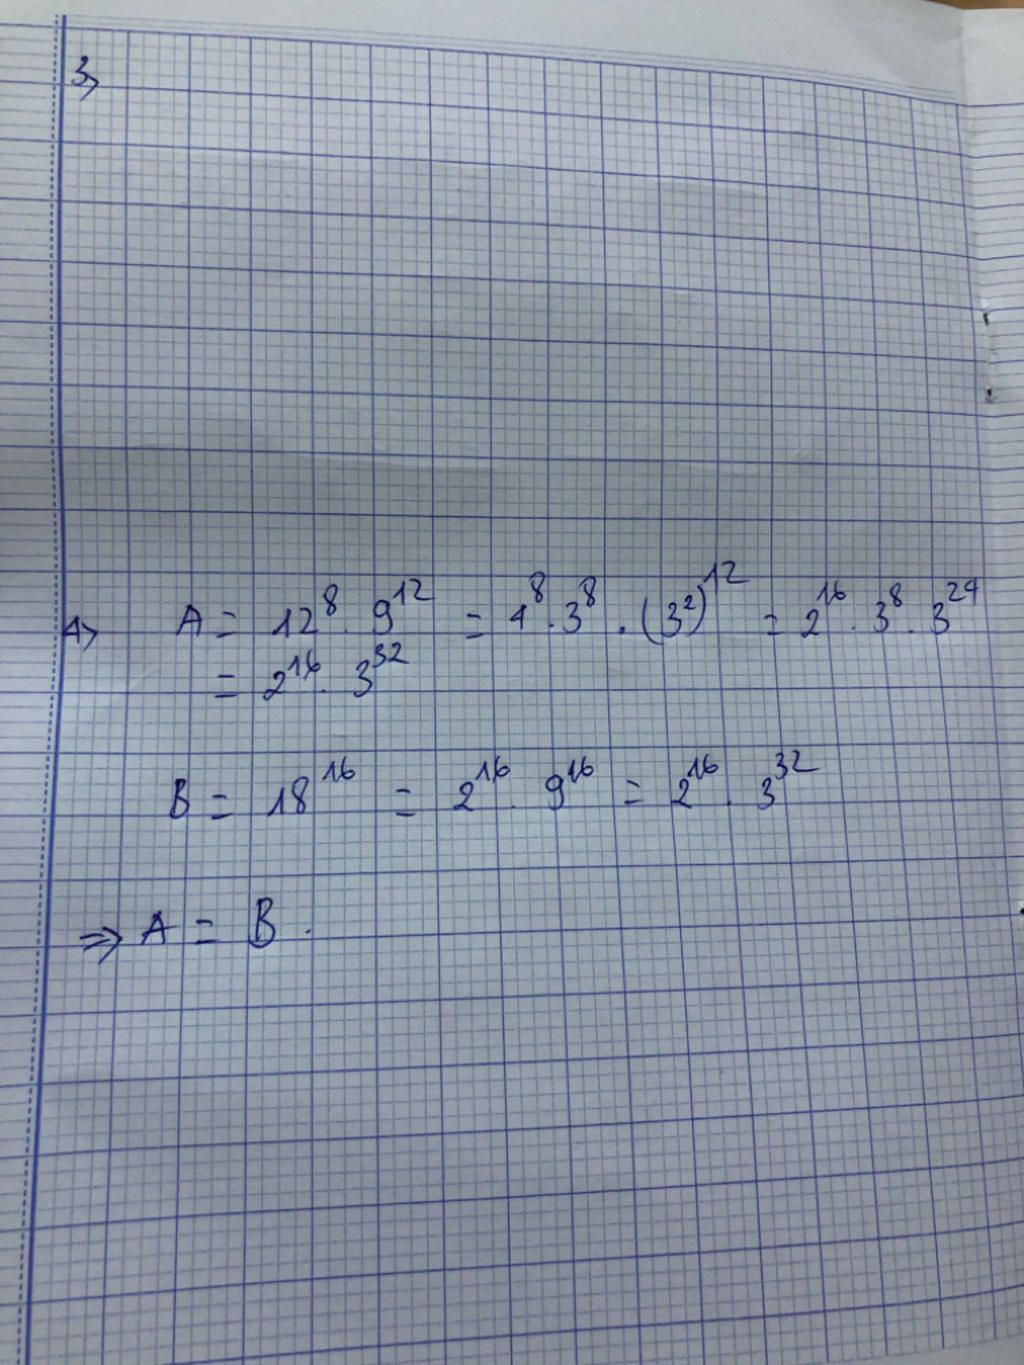 3>
4> A = 12⁸ . 9¹² = 4⁸ . 3⁸ . (3²)¹² = 2¹⁶ . 3⁸ . 3²⁴
= 2¹⁶ . 3³²
B = 18¹⁶ = 2¹⁶ . 9¹⁶ = 2¹⁶ . 3³²
=> A = B .